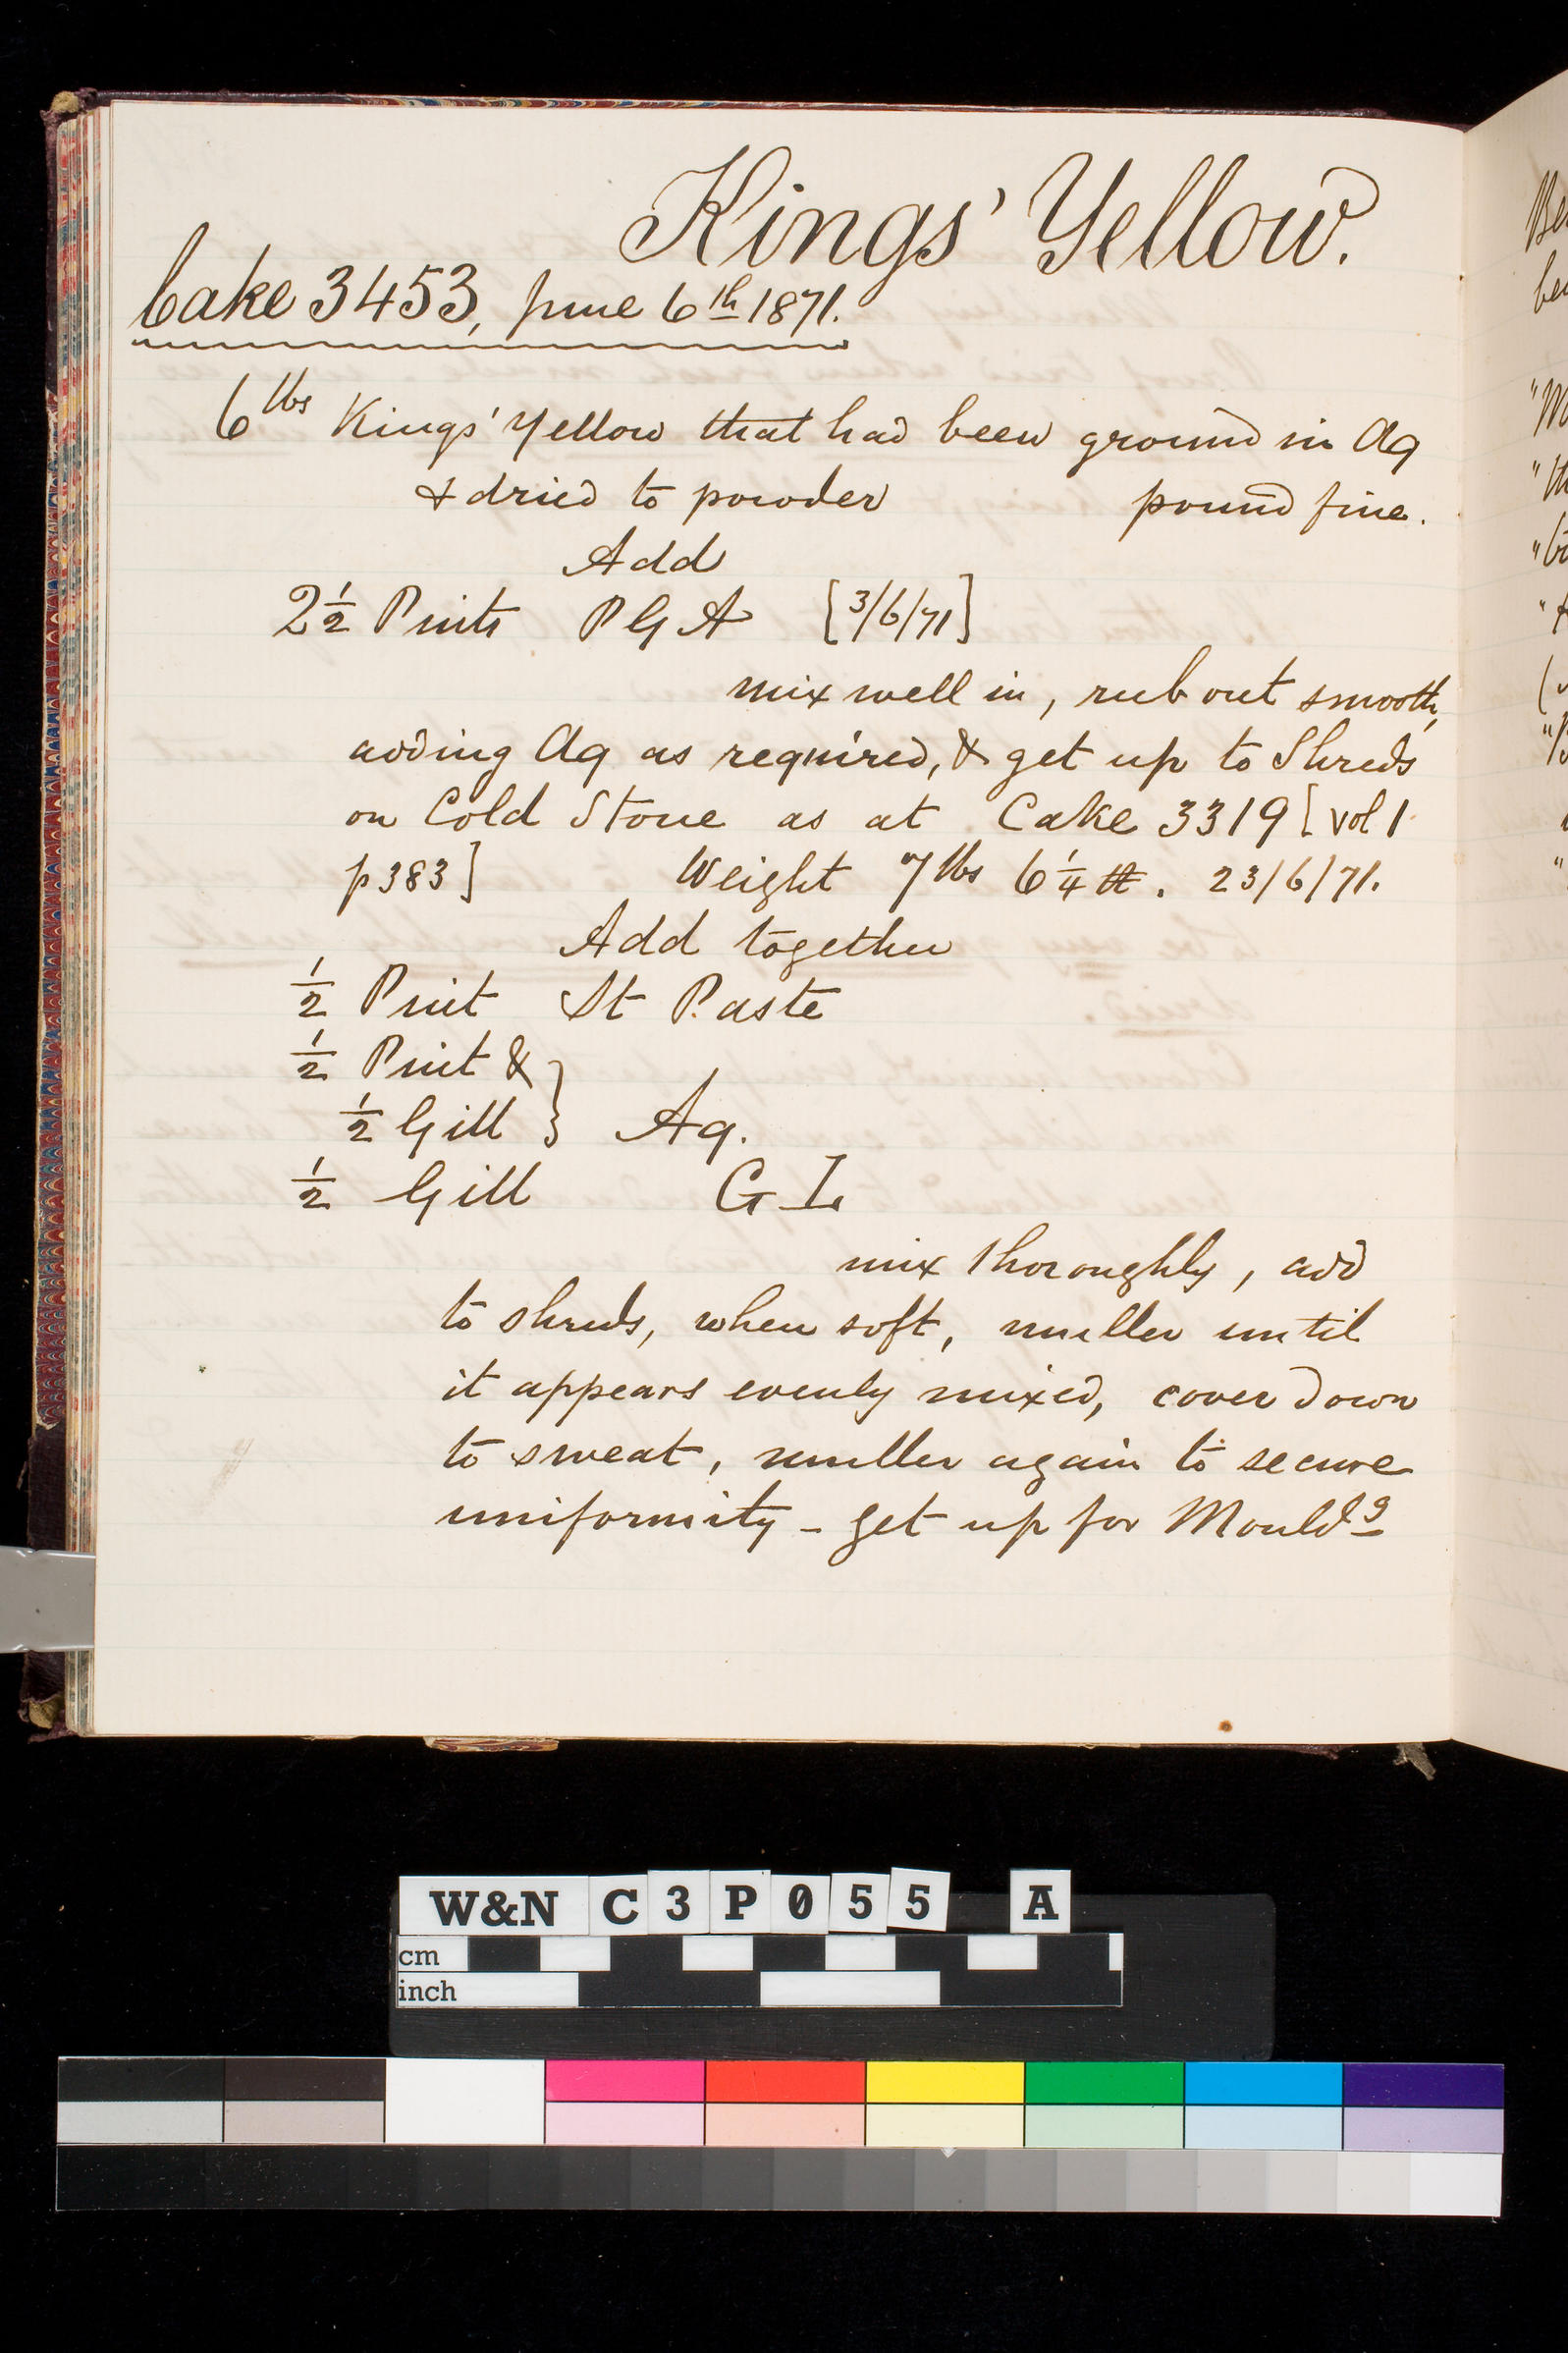 Kings' Yellow.
Cake 3453, June 6th 1871.
6 lbs Kings' Yellow that had been ground in Aq
& dried to powder pound fine.
Add
2½ Pints P G A [3/6/71]
mix well in, rub out smooth,
adding Aq as required, & get up to Shreds
on Cold Stone as at Cake 3319 [vol 1
p383] Weight 7 lbs 6¼ . 23/6/71.
Add together
½ Pint St Paste
½ Pint & }
½ Gill } Aq.
½ Gill G L
mix thoroughly, add
to shreds, when soft, muller until
it appears evenly mixed, cover down
to sweat, muller again to secure
uniformity – get up for Mouldg
W&N C3P055 A
cm
inch